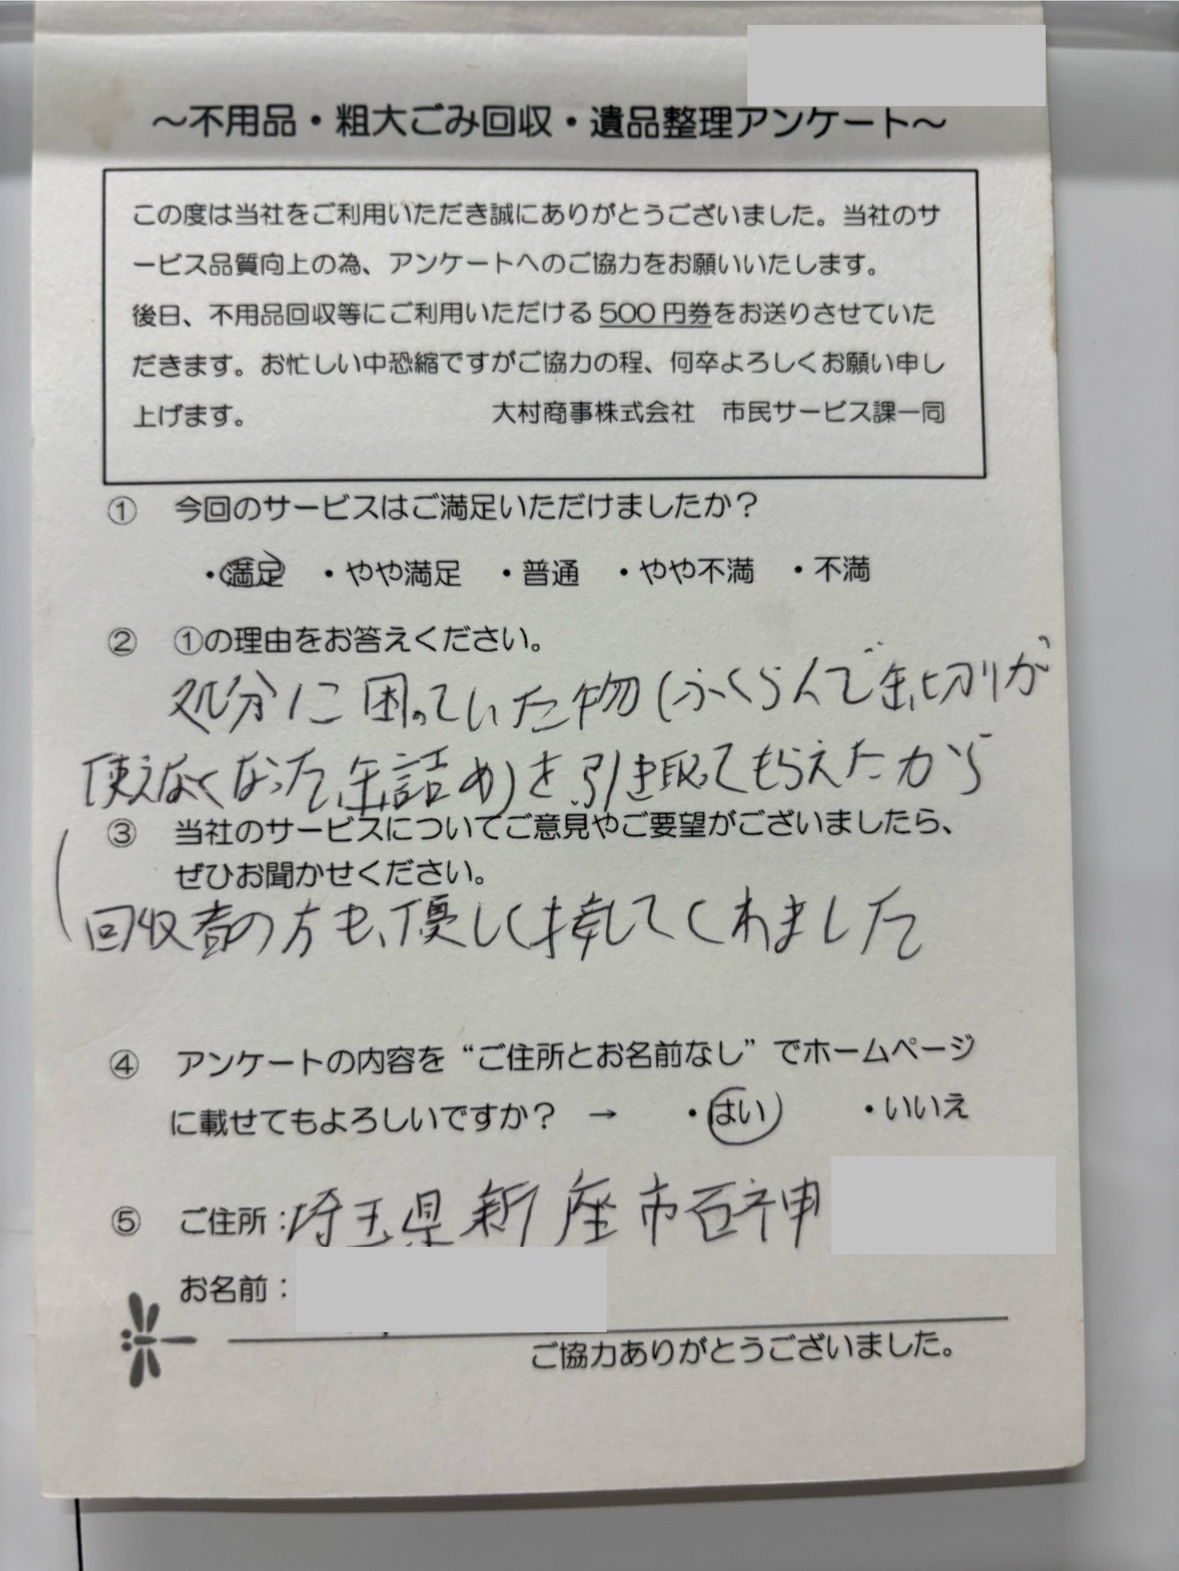 ～不用品・粗大ごみ回収・遺品整理アンケート～
この度は当社をご利用いただき誠にありがとうございました。当社のサ
ービス品質向上の為、アンケートへのご協力をお願いいたします。
後日、不用品回収等にご利用いただける 500 円券をお送りさせていた
だきます。お忙しい中恐縮ですがご協力の程、何卒よろしくお願い申し
上げます。 大村商事株式会社 市民サービス課一同
① 今回のサービスはご満足いただけましたか？
・満足 ・やや満足 ・普通 ・やや不満 ・不満
② ①の理由をお答えください。
処分に困っていた物(ふくらんで缶切りが
使えなくなった缶詰め)を引き取ってもらえたから
③ 当社のサービスについてご意見やご要望がございましたら、
ぜひお聞かせください。
回収者の方も、優しく接してくれました
④ アンケートの内容を“ご住所とお名前なし”でホームページ
に載せてもよろしいですか？ → ・はい ・いいえ
⑤ ご住所：埼玉県新座市石神
お名前：
ご協力ありがとうございました。